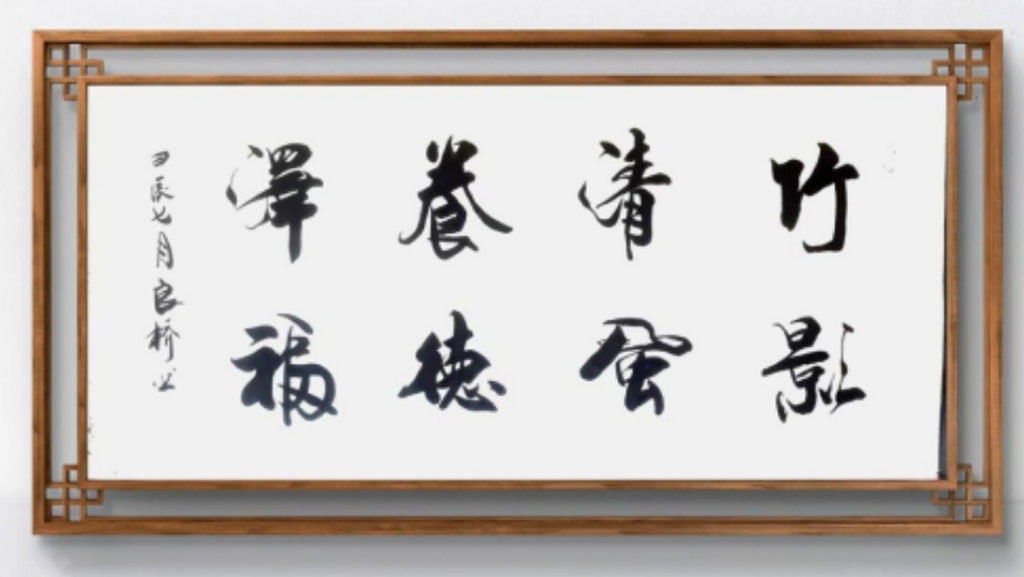 竹影
清風
養德
澤福
甲辰七月良桥书